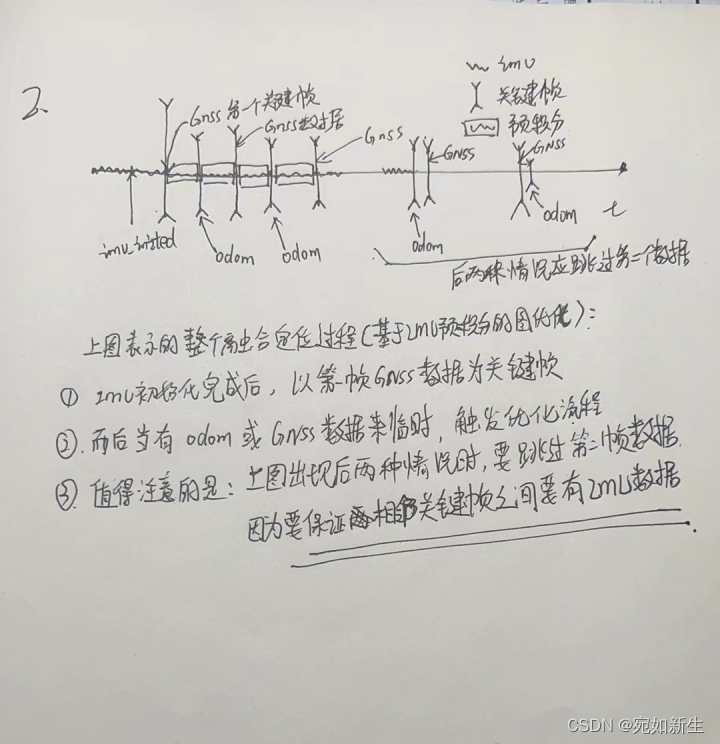 2.
imu
关键帧
预积分
Gnss第一个关键帧
Gnss数据
Gnss
GNSS
GNSS
imu_inited
odom
odom
odom
odom
t
后两种情况应跳过第二个数据
上图表示的整个融合定位过程(基于imu预积分的图优化):
① imu初始化完成后, 以第一帧Gnss数据为关键帧
②. 而后当有 odom 或 Gnss 数据来临时, 触发优化流程
③. 值得注意的是: 上图出现后两种情况时, 要跳过第二帧数据.
因为要保证两相邻关键帧之间要有imu数据.
CSDN @宛如新生